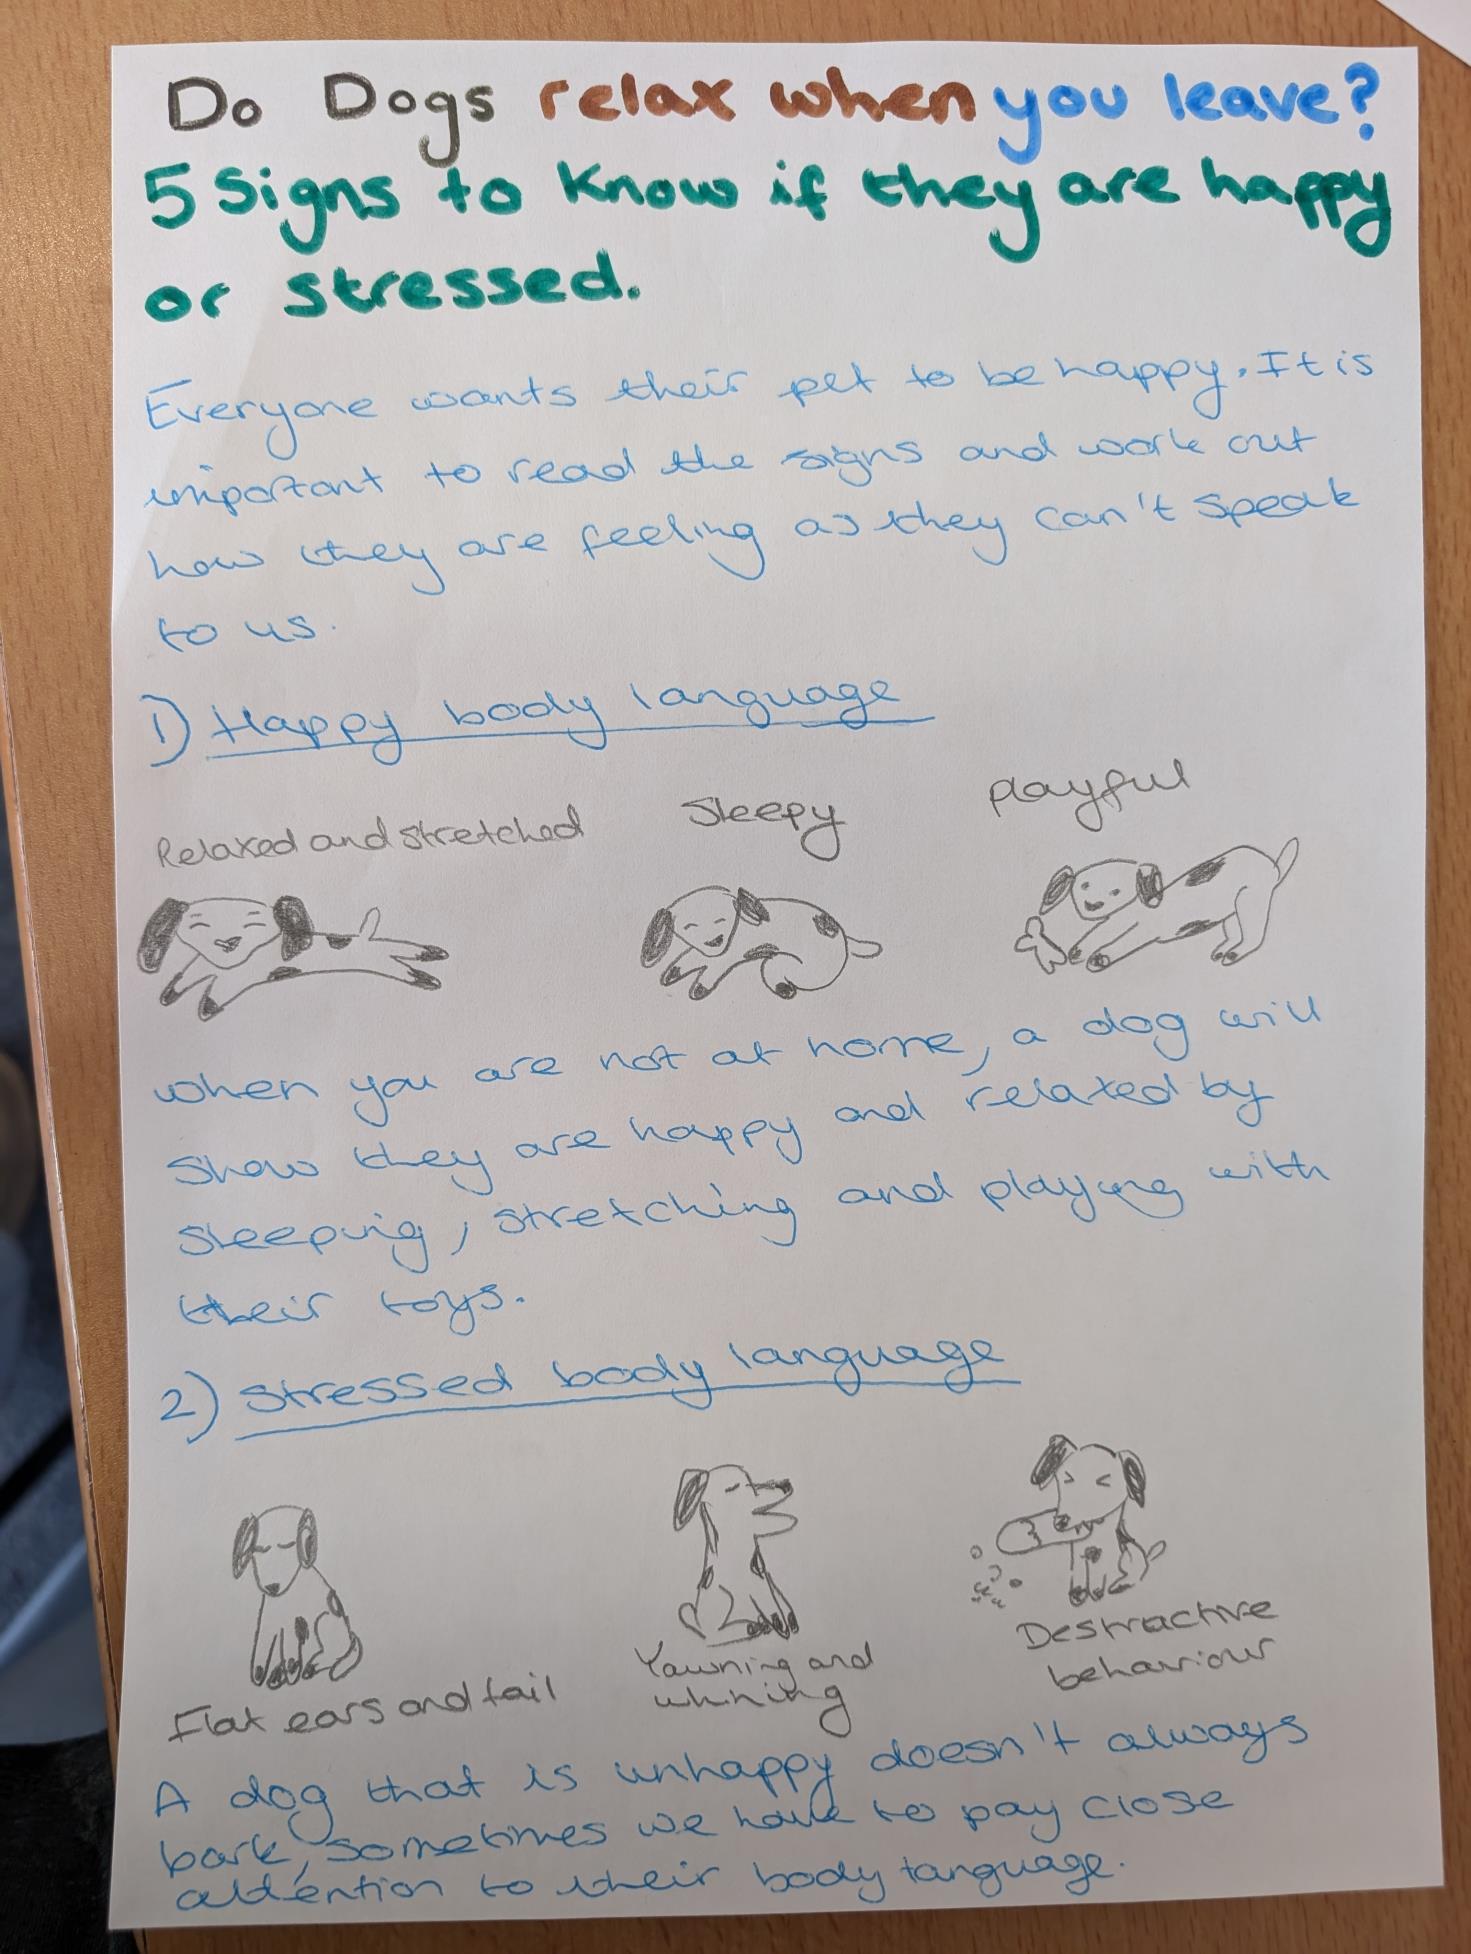 Do Dogs relax when you leave?
5 Signs to know if they are happy
or stressed.
Everyone wants their pet to be happy. It is
important to read the signs and work out
how they are feeling as they can't speak
to us.
1) Happy body language
Relaxed and stretched
Sleepy
Playful
when you are not at home, a dog will
show they are happy and relaxed by
sleeping, stretching and playing with
their toys.
2) Stressed body language
Flat ears and tail
Yawning and
whining
Destractive
behaviour
A dog that is unhappy doesn't always
bark, sometimes we have to pay close
attention to their body language.